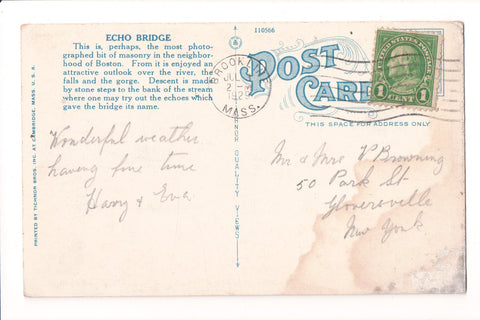 ECHO BRIDGE
This is, perhaps, the most photo-
graphed bit of masonry in the neighbor-
hood of Boston. From it is enjoyed an
attractive outlook over the river, the
falls and the gorge. Descent is made
by stone steps to the bank of the stream
where one may try out the echoes which
gave the bridge its name.
Wonderful weather
having fine time
Harry & Eva
PRINTED BY TICHNOR BROS. INC. AT CAMBRIDGE, MASS. U. S. A.
QUALITY VIEWS
110566
POST
CARD
THIS SPACE FOR ADDRESS ONLY
BROOKLINE
MASS.
1 CENT 1
Mr & Mrs P Browning
50 Park St
Gloversville
New York